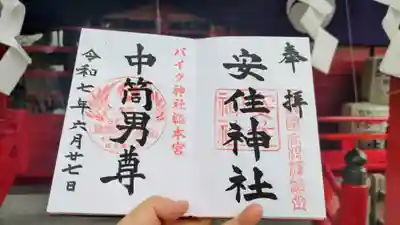 奉拝
安住神社
バイク神社総本宮
中筒男尊
令和七年六月廿七日